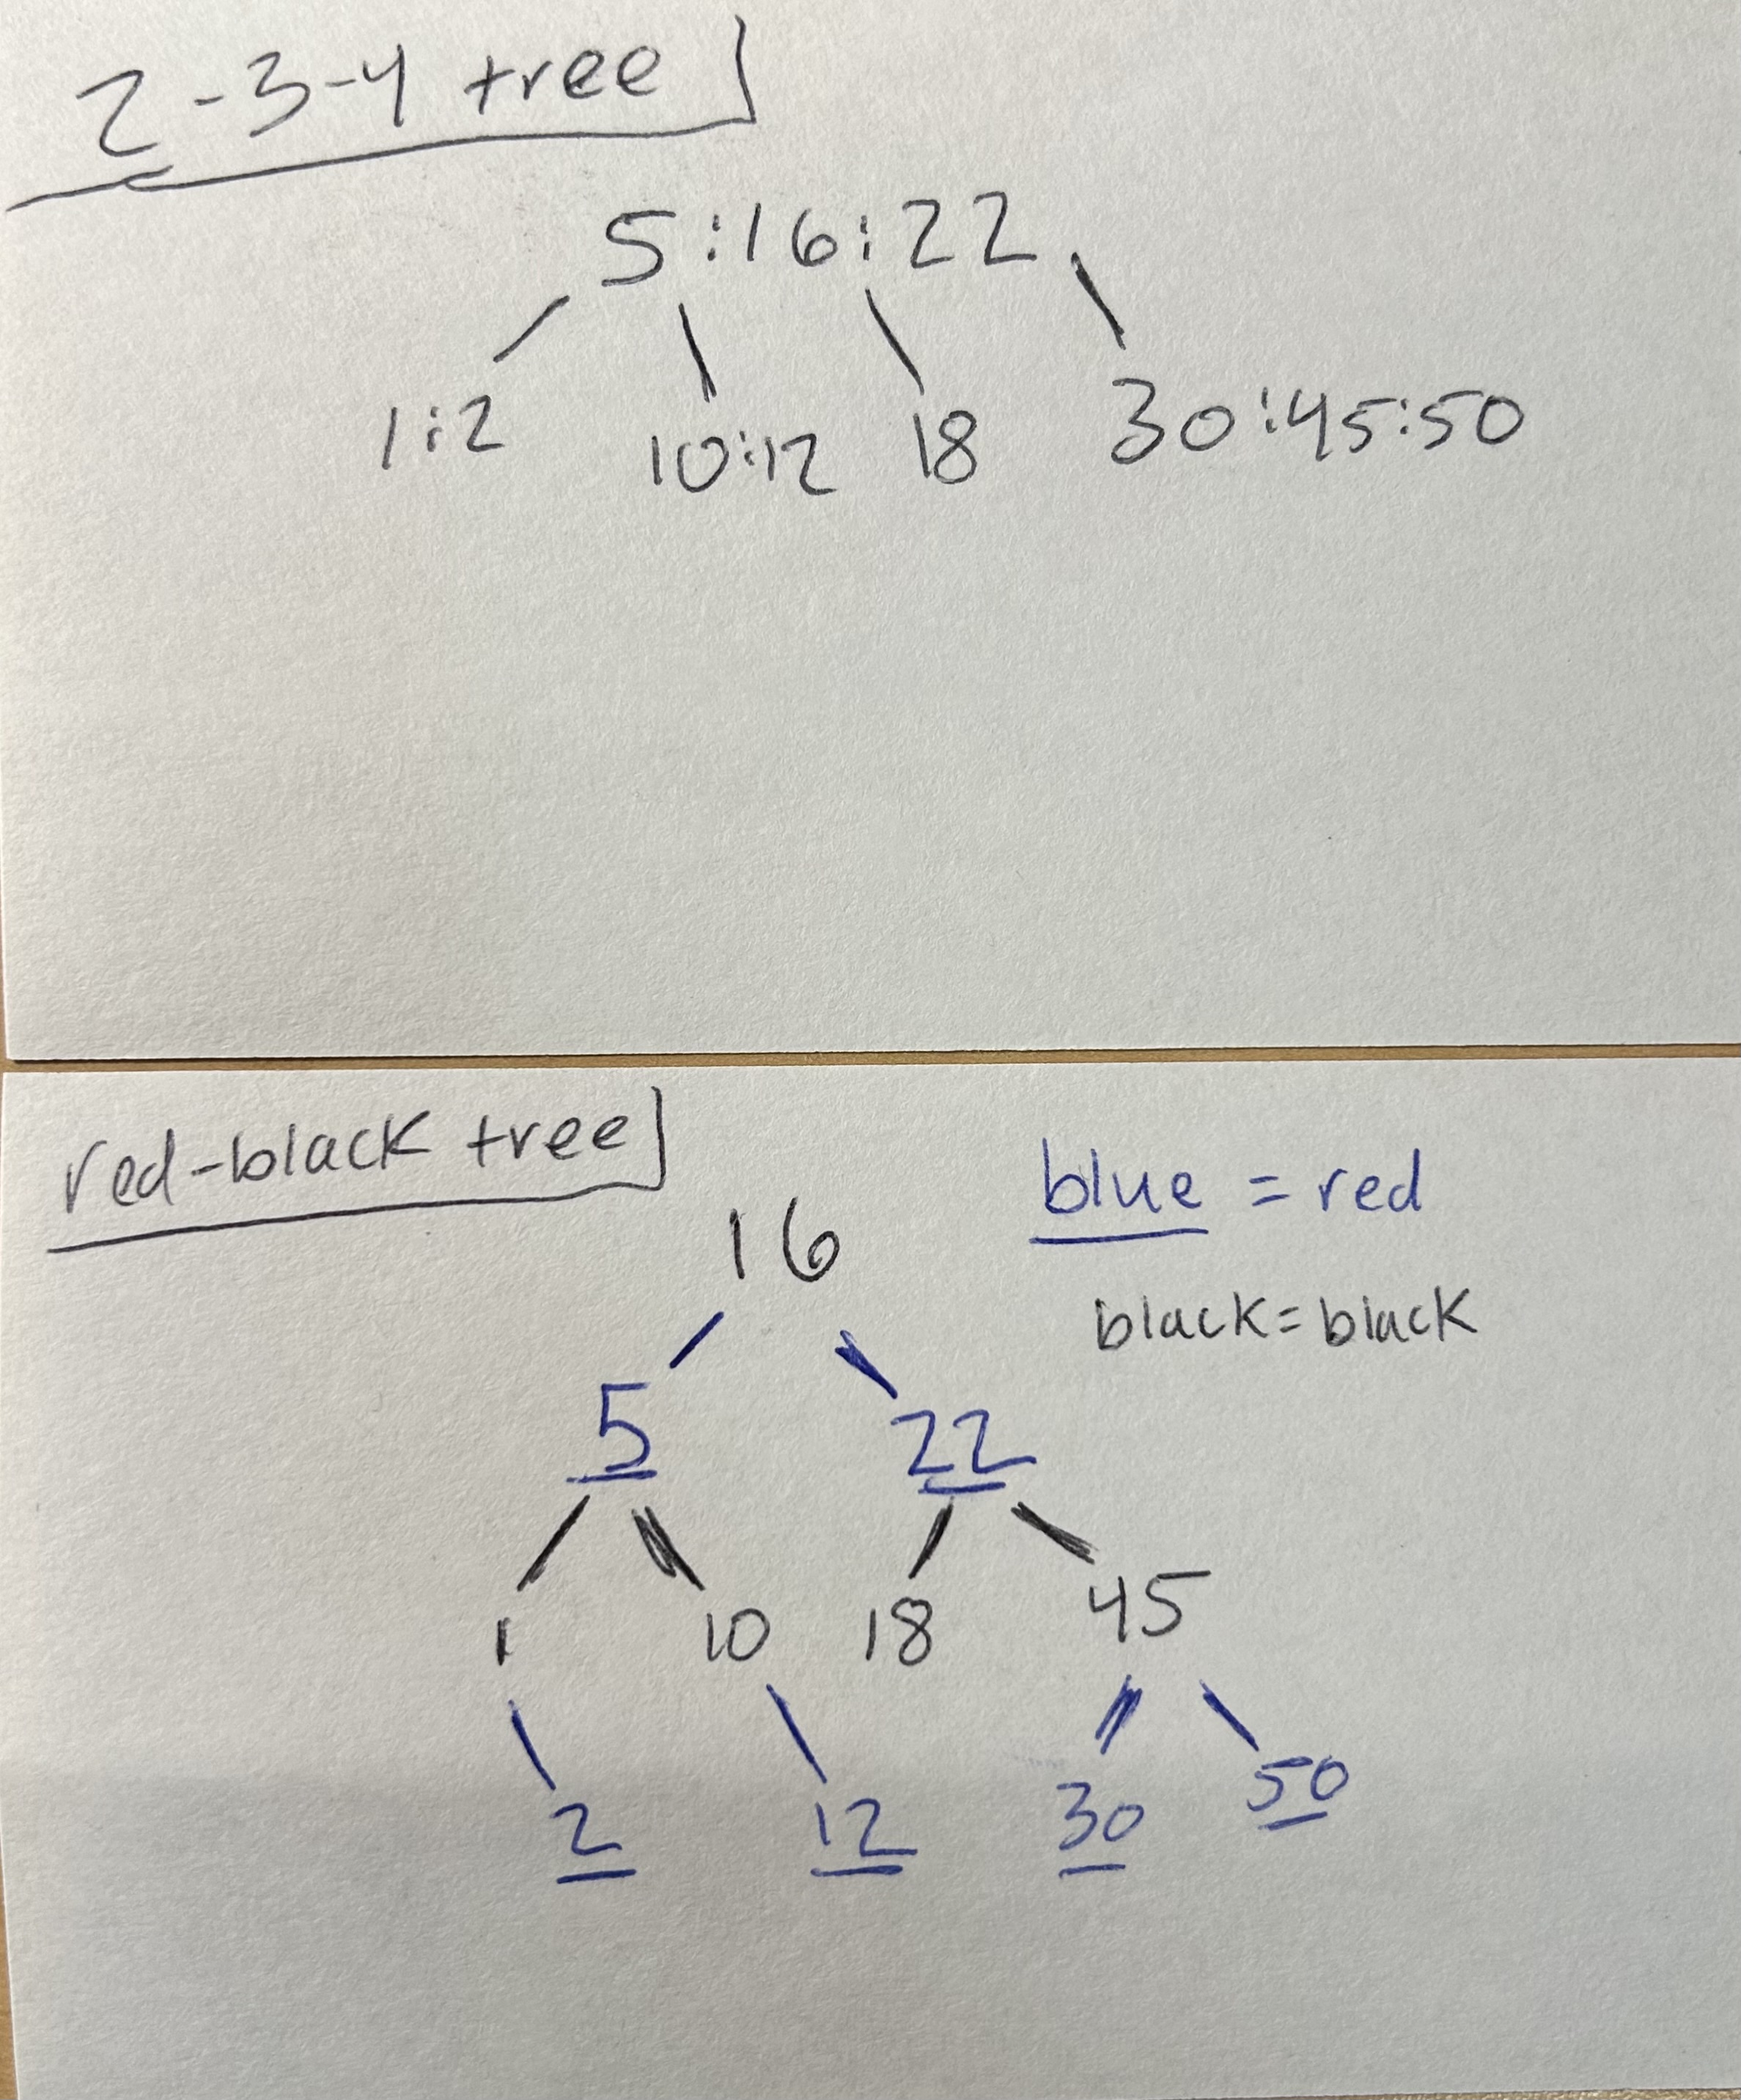 2-3-4 tree
5:16:22
1:2 10:12 18 30:45:50
red-black tree
blue = red
16
black=black
5 22
1 10 18 45
2 12 30 50